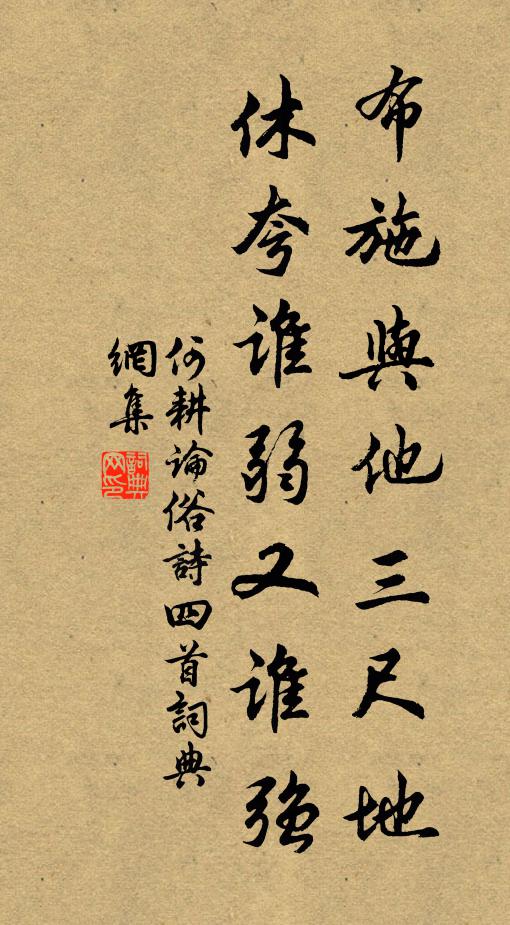 布施與他三尺地
休夸誰弱又誰強
何耕論俗詩四首詞典
網集
詞典
网印